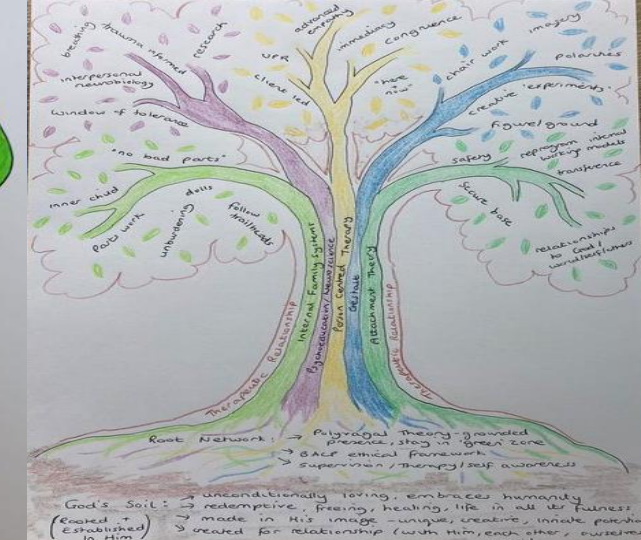 breathing
trauma informed
research
interpersonal
neurobiology
window of tolerance
UPR
client led
advanced
empathy
immediacy
congruence
"here
+
now"
chair work
imagery
polarities
creative 'experiments'
figure/ground
"no bad parts"
inner child
dolls
parts work
unburdening
follow
trailheads
safety
reprogram internal
working models
transference
secure base
relationships
to God/
world/self/others
Therapeutic Relationship
Internal Family Systems
Psychoeducation/Neuroscience
Person Centred Therapy
Gestalt
Attachment Theory
Therapeutic Relationship
Root Network: → Polyvagal Theory - grounded
presence, stay in 'green' zone
→ BACP ethical framework
→ Supervision/Therapy/self awareness
God's Soil: → unconditionally loving, embraces humanity
→ redemptive, freeing, healing, life in all its fulness
(Rooted + → made in His image - unique, creative, innate
Established → created for relationship (with Him, each other,
in Him)